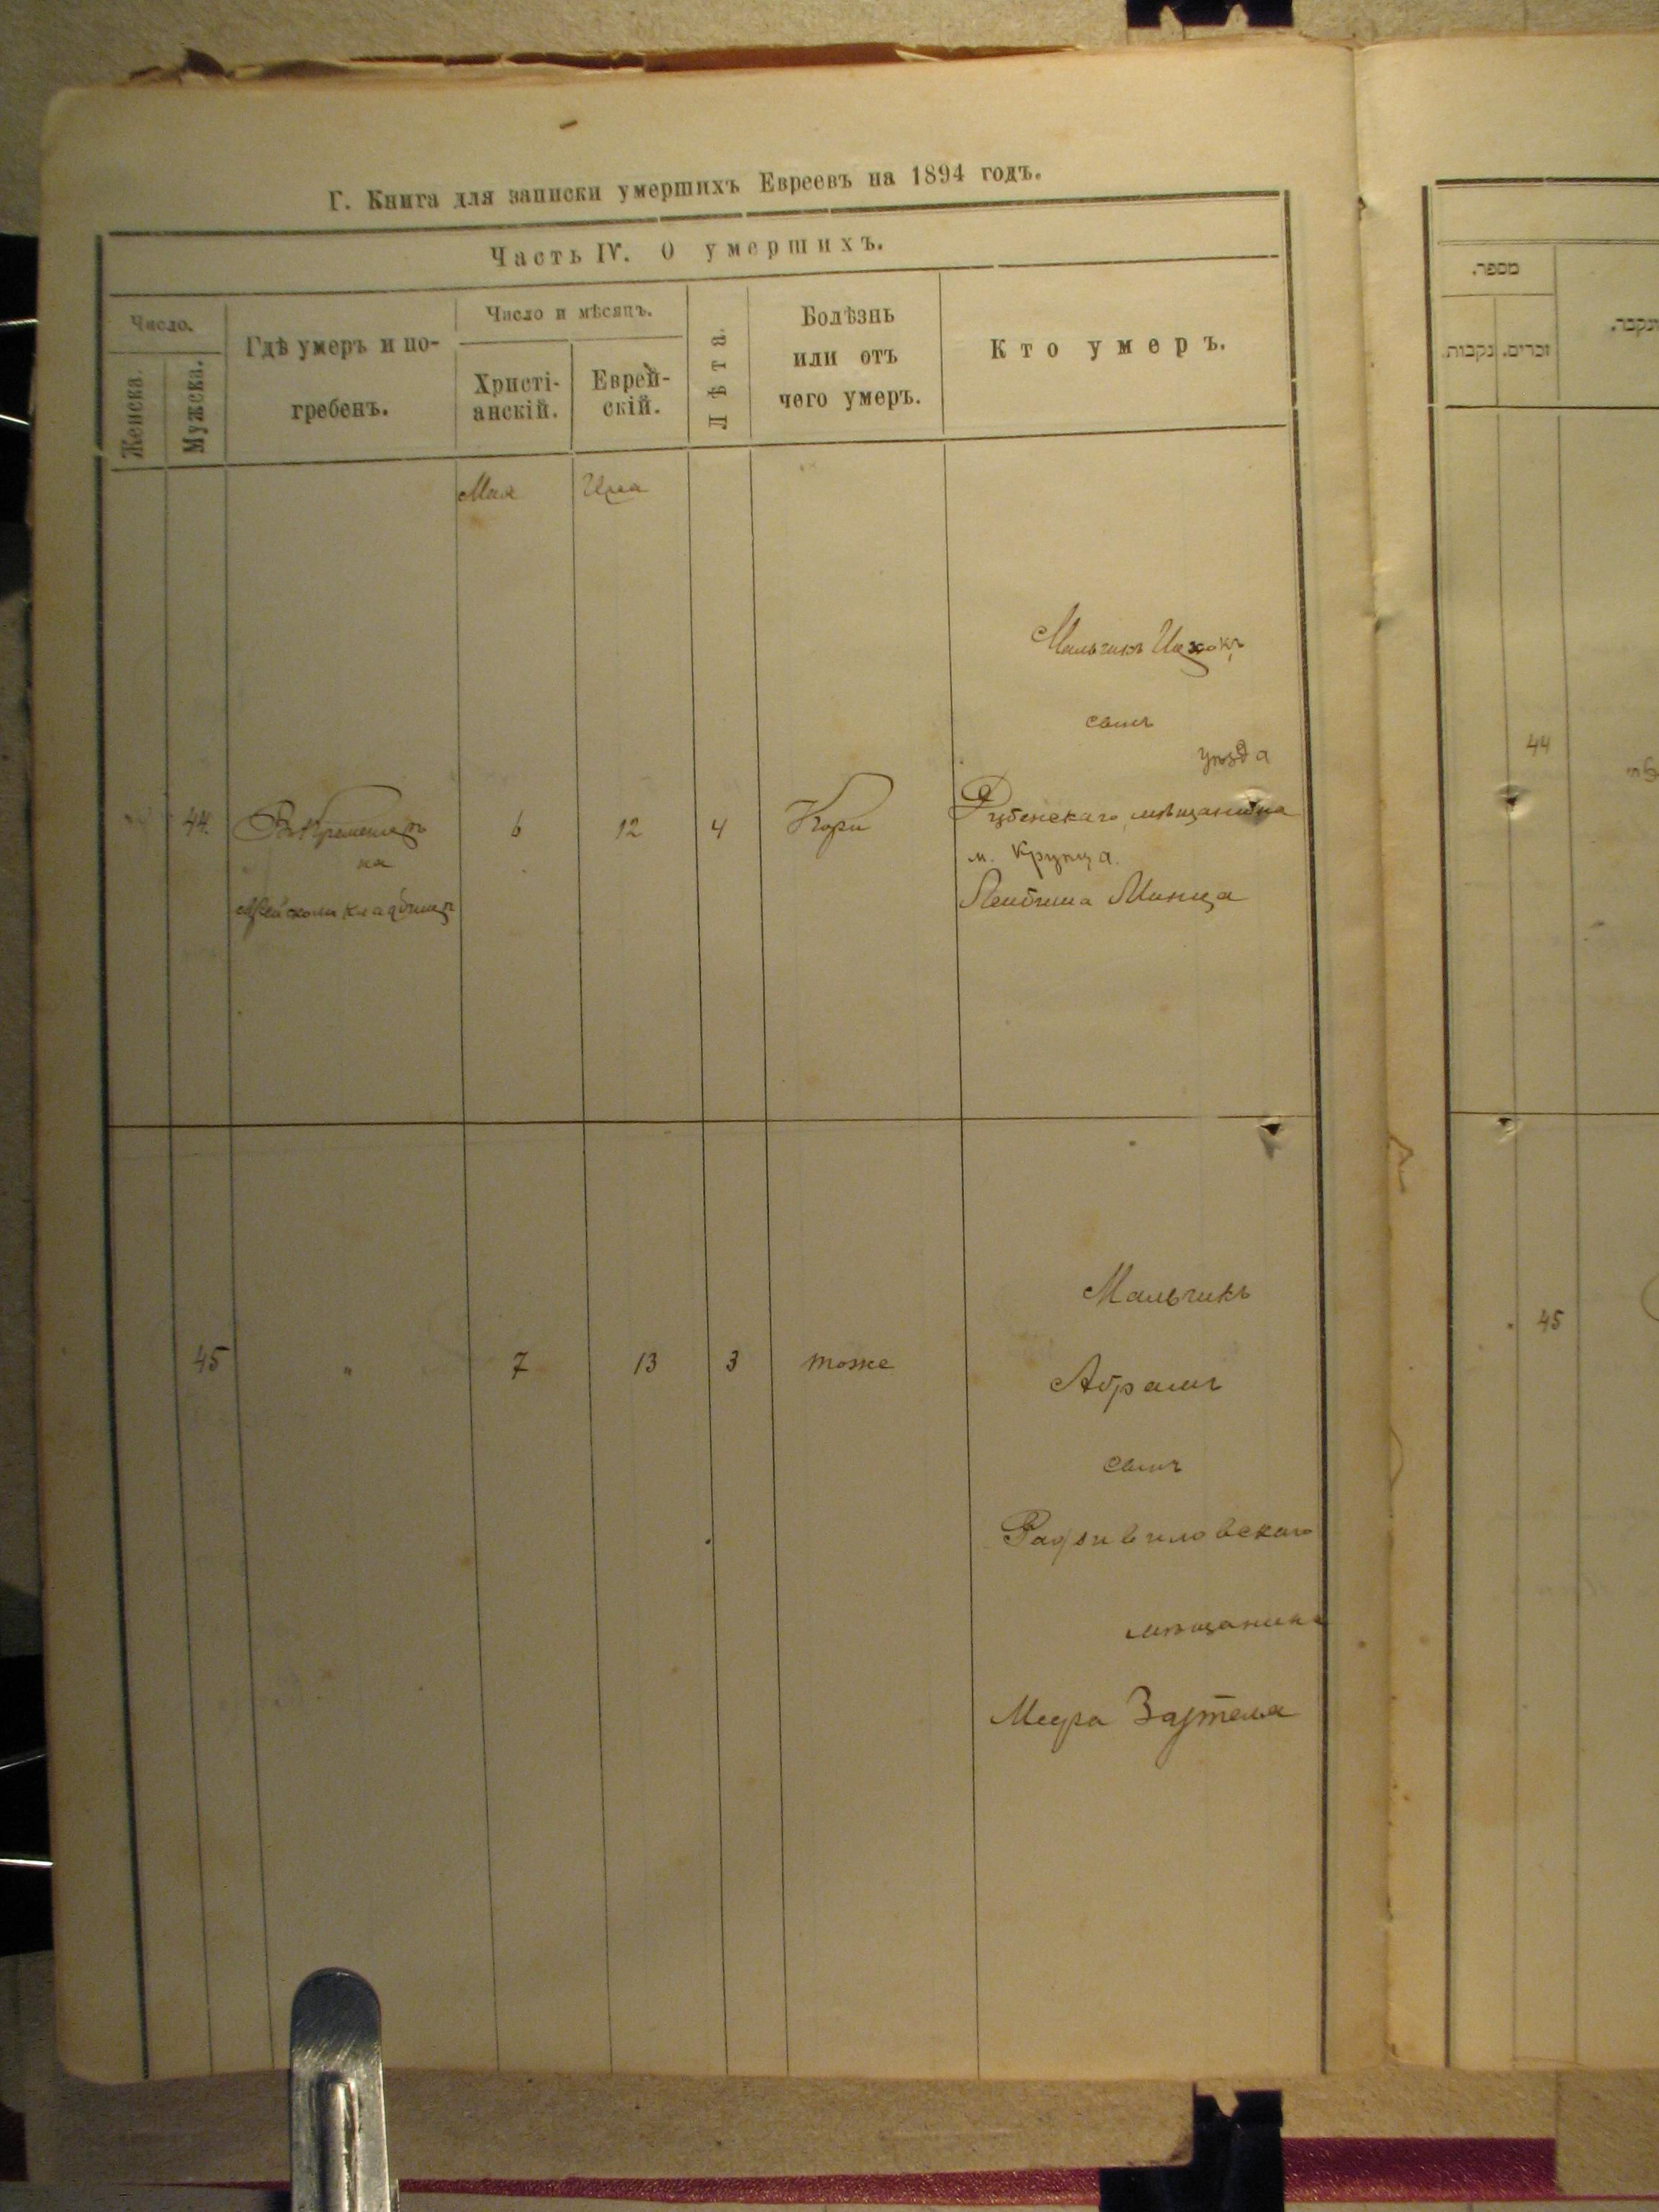 Г. Книга для записки умершихъ Евреевъ на 1894 годъ.
Часть IV. О умершихъ.
Число.
Женска.
Мужска.
Гдѣ умеръ и по-
гребенъ.
Число и мѣсяцъ.
Христі-
анскій.
Еврей-
скій.
Лѣта.
Болѣзнь
или отъ
чего умеръ.
Кто умеръ.
Мая
Іира
Мальчикъ Ицхокъ
сынъ
уѣзда
44. Въ Кременцѣ 6 12 4 Кори Дубенскаго мѣщанина
на
м. Крупца
кладбищѣ
Лейбиша Минца
Мальчикъ
45 " 7 13 3 тоже
Абрамъ
сынъ
Радзивиловскаго
мѣщанина
Меера
מספר.
זכרים.
נקבות.
44
45